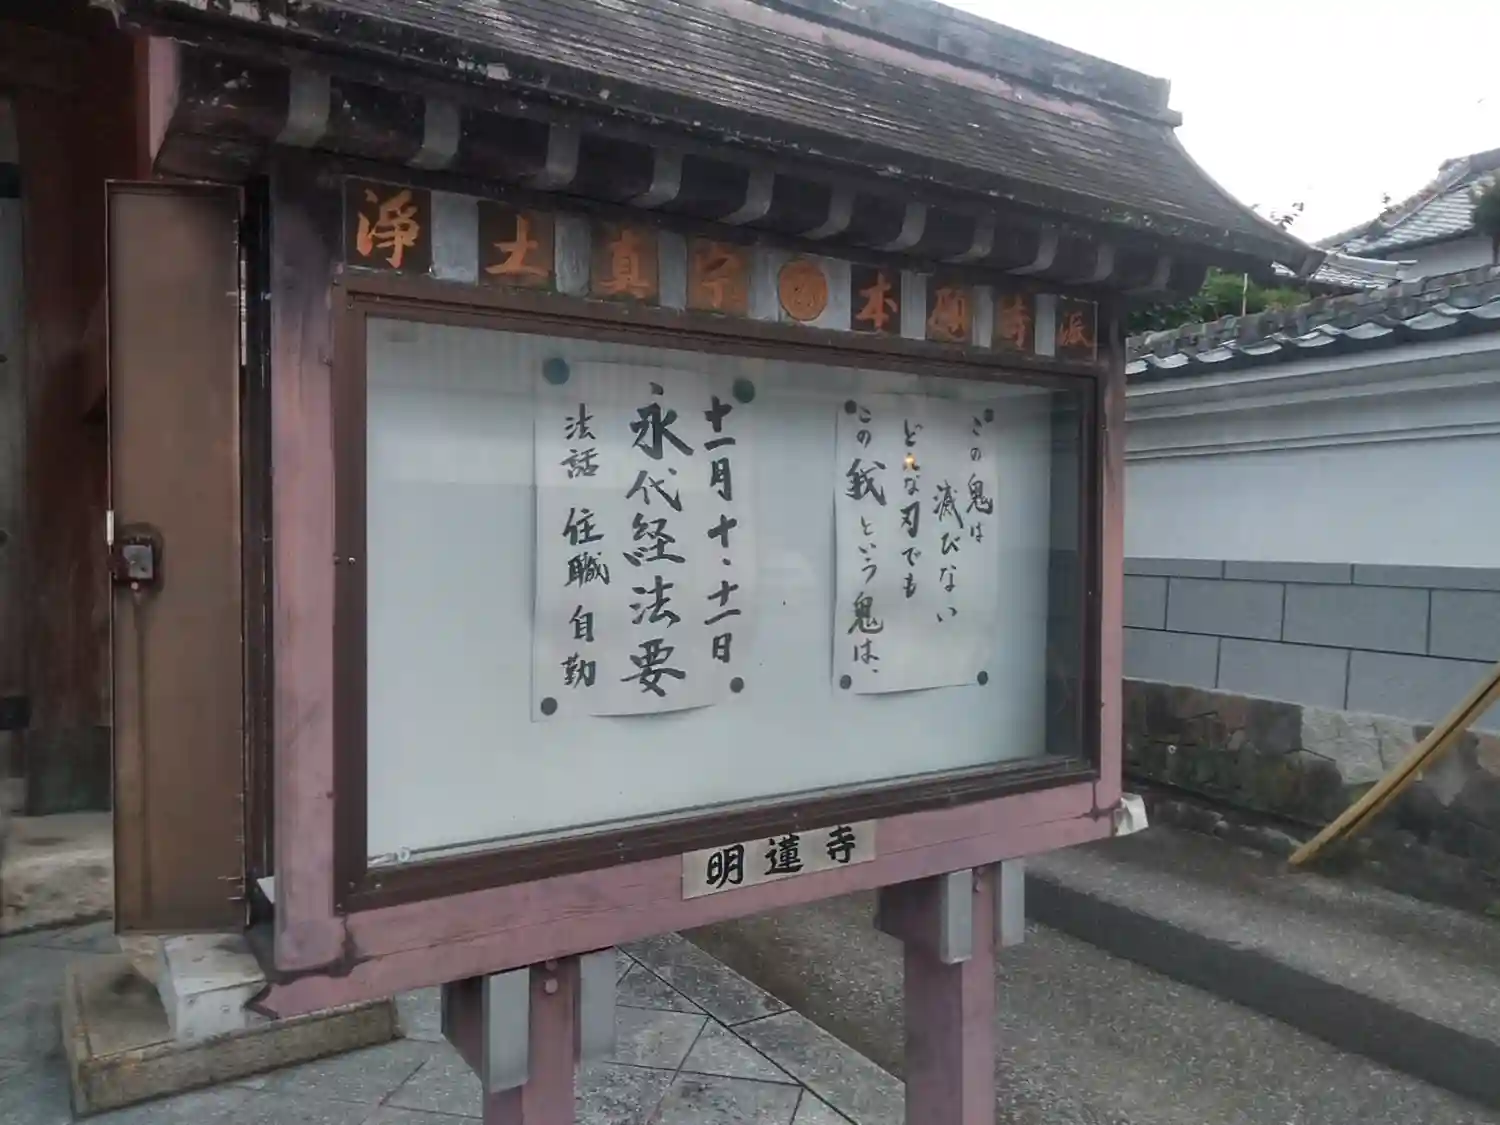 淨土真宗本願寺派
この鬼は
滅びない
どんな刃でも
この我という鬼は、
十一月十、十一日
永代経法要
法話 住職 自勤
明蓮寺